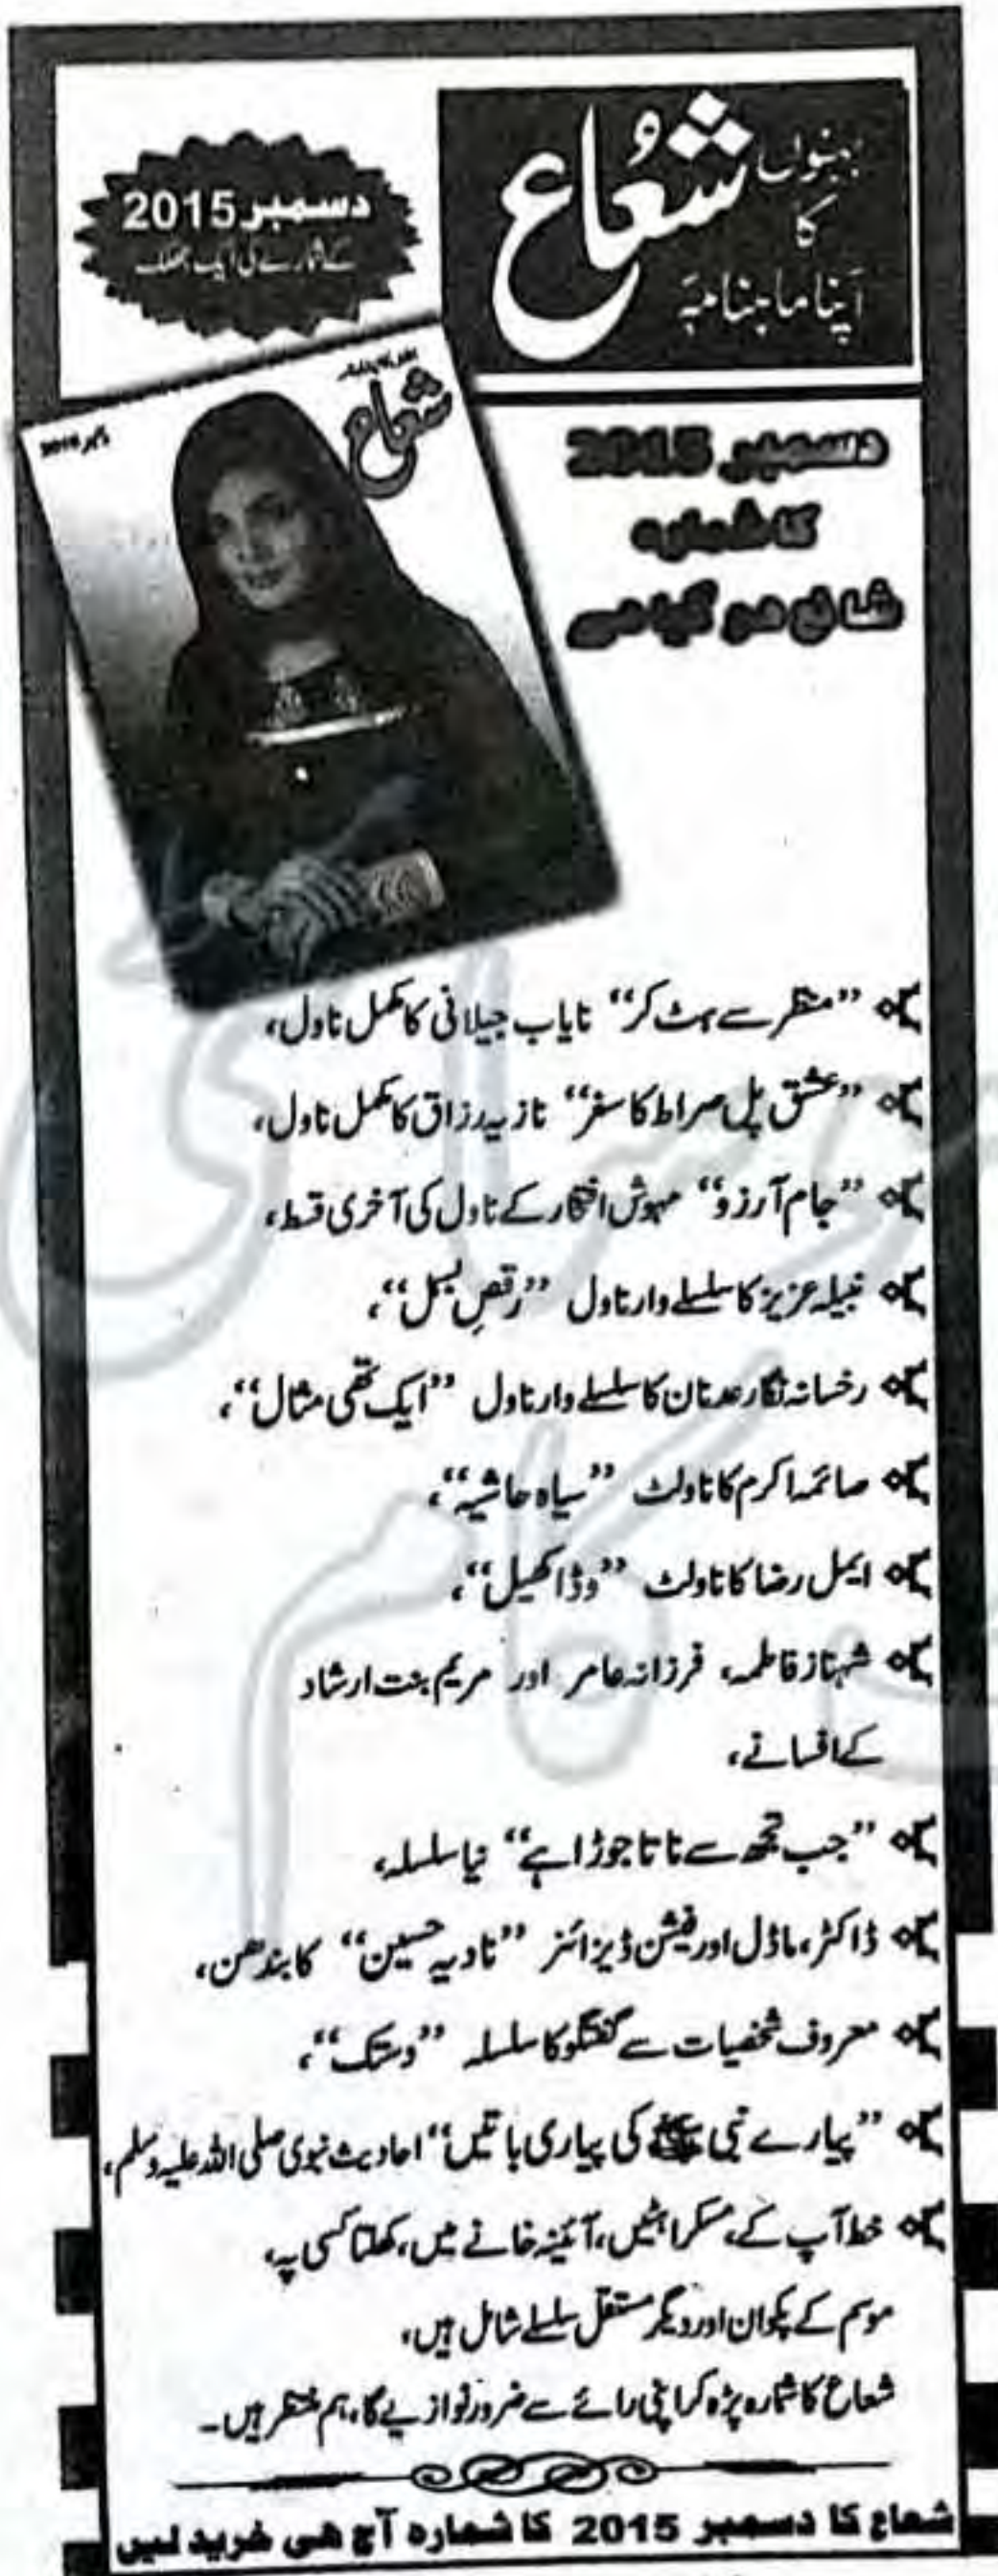 بہنوں
کا
اپنا ماہنامہ
شعاع
دسمبر 2015
کے شمارے کی ایک جھلک
شعاع
دسمبر 2015
کا شمارہ
شائع ہو گیا ہے
”منظر سے ہٹ کر“ نایاب جیلانی کا مکمل ناول،
”عشق پل صراط کا سفر“ نازیہ رزاق کا مکمل ناول،
”جام آرزو“ مہوش افتخار کے ناول کی آخری قسط،
نبیلہ عزیز کا سلسلے وار ناول ”رقصِ بسمل“،
رخسانہ نگار عدنان کا سلسلے وار ناول ”ایک تھی مثال“،
صائمہ اکرم کا ناولٹ ”سیاہ حاشیہ“،
ایمل رضا کا ناولٹ ”وڈا کھیل“،
شہناز فاطمہ، فرزانہ عامر اور مریم بنت ارشاد
کے افسانے،
”جب تجھ سے ناتا جوڑا ہے“ نیا سلسلہ،
ڈاکٹر، ماڈل اور فیشن ڈیزائنر ”نادیہ حسین“ کا بندھن،
معروف شخصیات سے گفتگو کا سلسلہ ”دستک“،
”پیارے نبی ﷺ کی پیاری باتیں“ احادیث نبوی صلی اللہ علیہ وسلم،
خط آپ کے، مسکراہٹیں، آئینہ خانے میں، کھلتا کسی پہ،
موسم کے پکوان اور دیگر مستقل سلسلے شامل ہیں،
شعاع کا شمارہ پڑھ کر اپنی رائے سے ضرور نوازیے گا، ہم منتظر ہیں۔
شعاع کا دسمبر 2015 کا شمارہ آج ھی خرید لیں